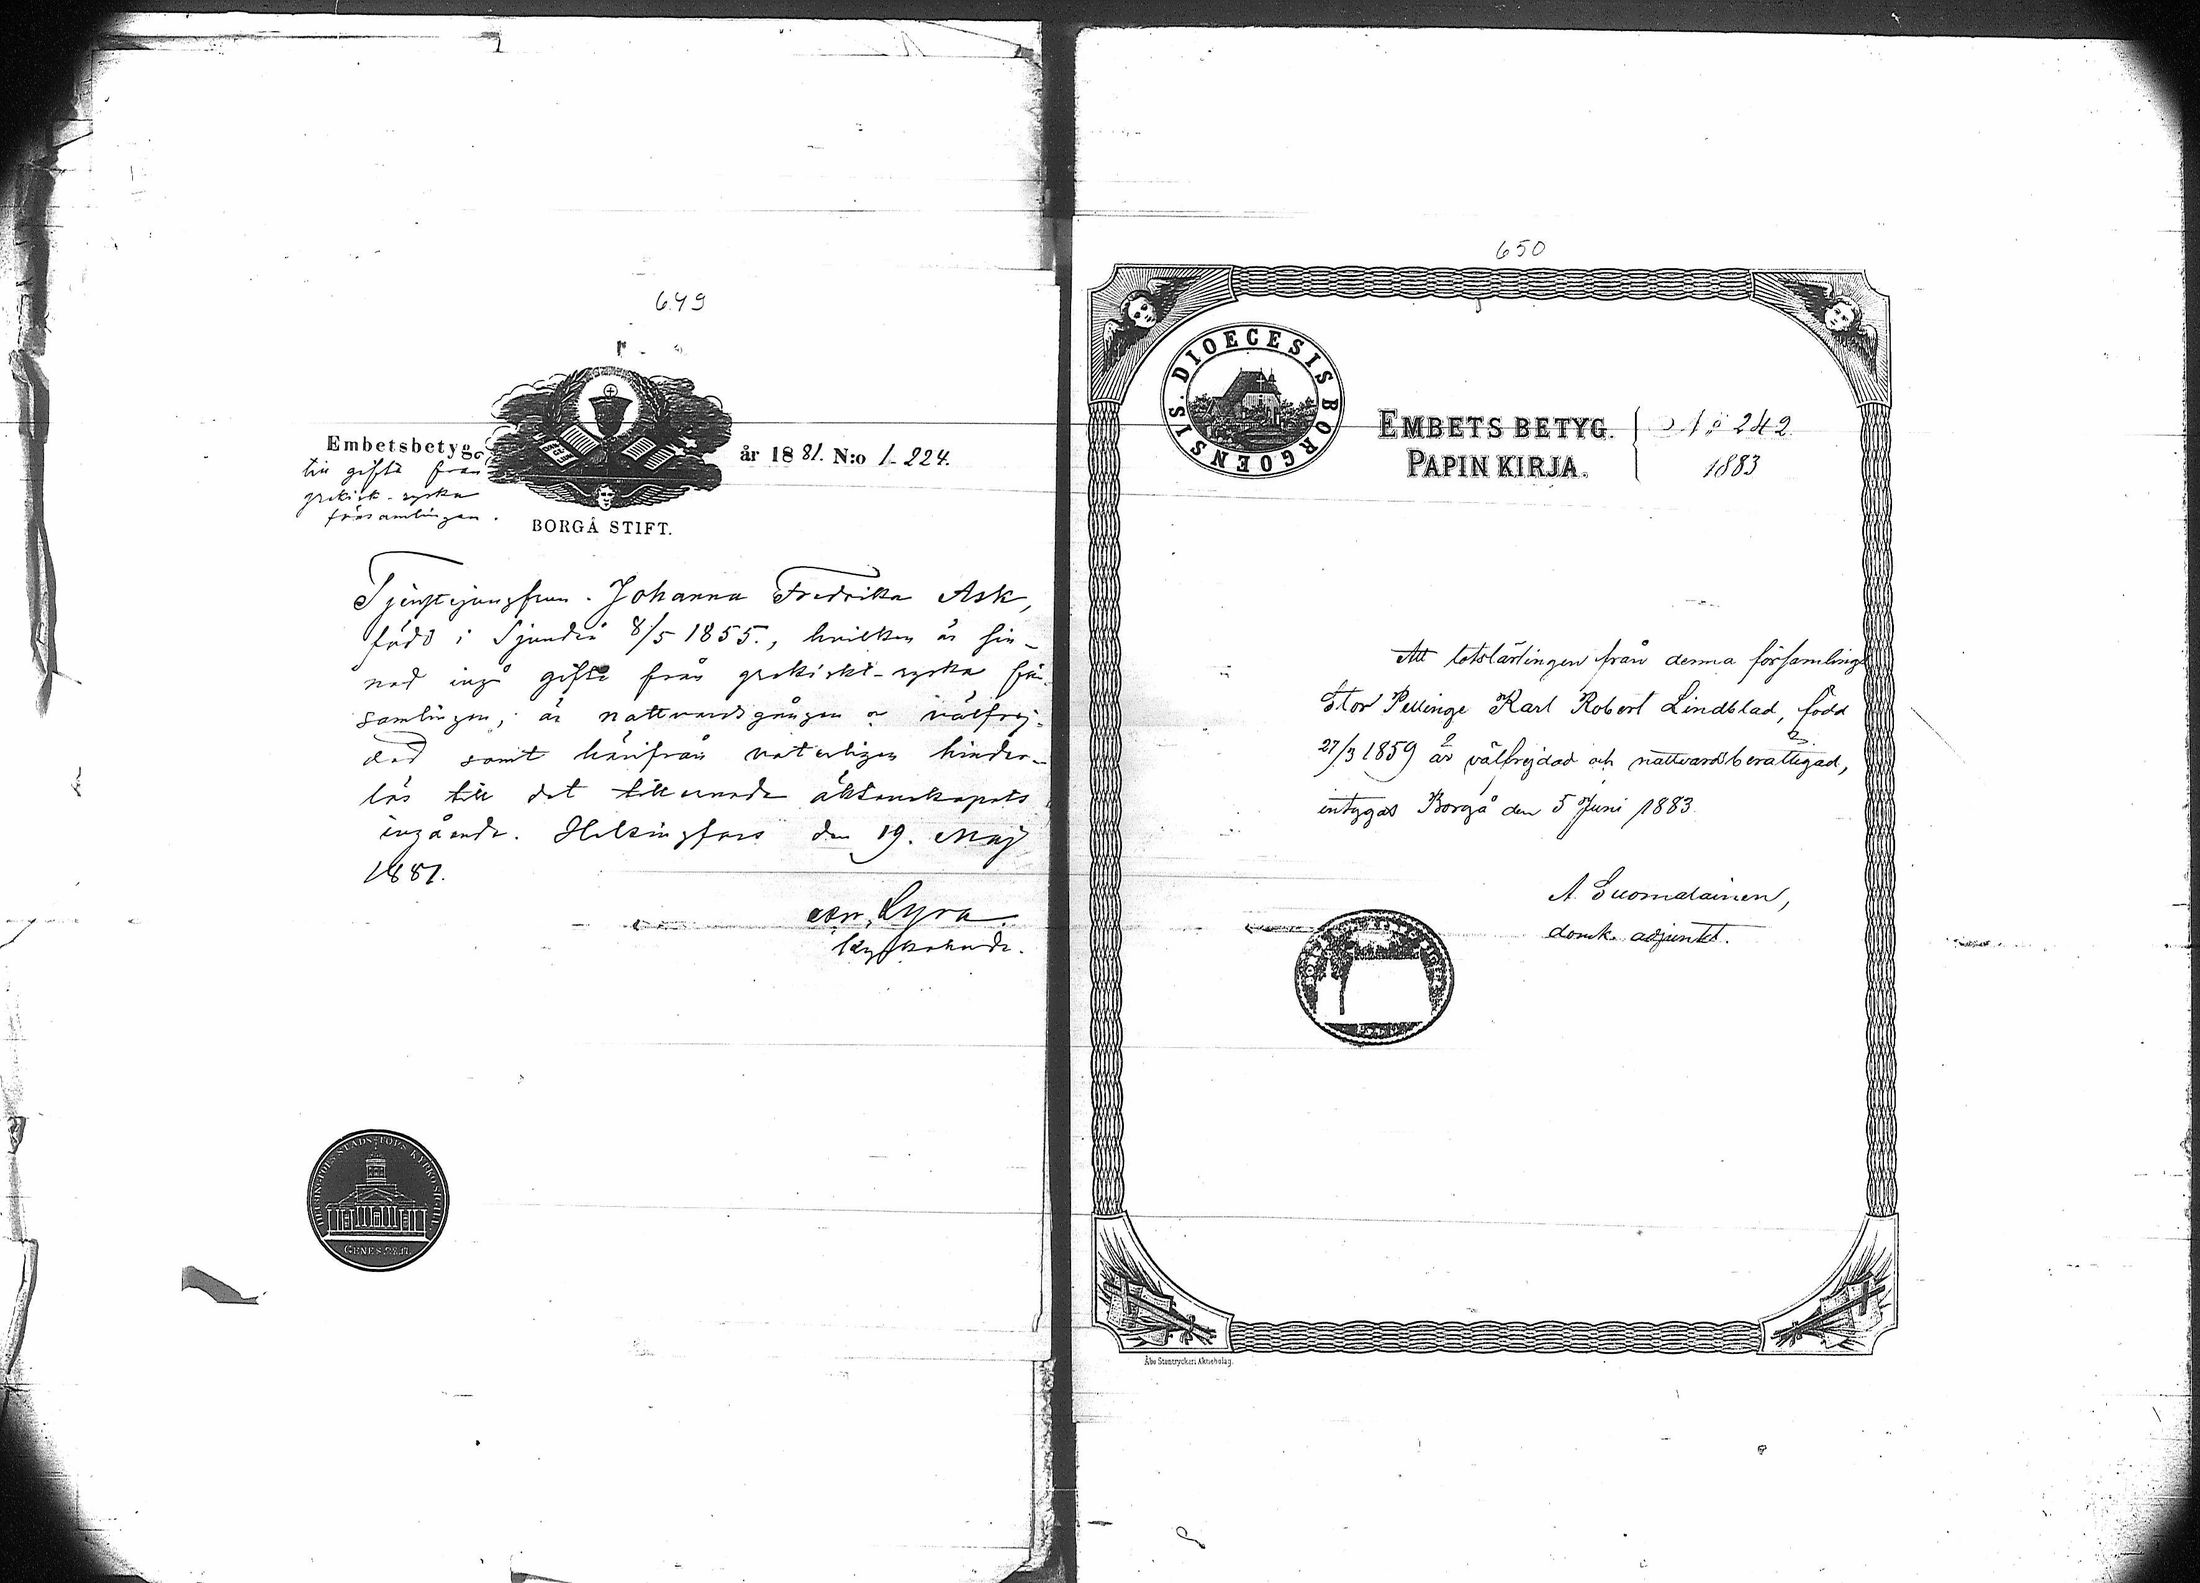 649
Embetsbetyg
år 1881. N:o 1-224.
till gifte från
grekisk-ryska
församlingen.
BORGÅ STIFT.
Tjenstejungfrun Johanna Fredrika Ask,
född i Sjundeå 8/5 1855., hvilken är sin-
nad ingå gifte från grekiskt-ryska för-
samlingen, är nattvardsgången o välfrej-
dad samt härifrån veterligen hinder-
lös till det tillernade äktenskapets
ingående. Helsingfors den 19. Maj
1881.
Lyra
Kyrkoherde.
HELSINGFORS STADS KYRKO SIGILL
GENES. 28.17.
650
DIOECESIS BORGOENSIS.
EMBETS BETYG.
PAPIN KIRJA.
No 242
1883
Att lotslärlingen från denna församlings
Stor Pellinge Karl Robert Lindblad, född
27/3 1859 är välfrejdad och nattvardsberättigad,
intygas Borgå den 5 Juni 1883.
A. Suomalainen,
domk. adjunkt.
Åbo Stentryckeri Aktiebolag.